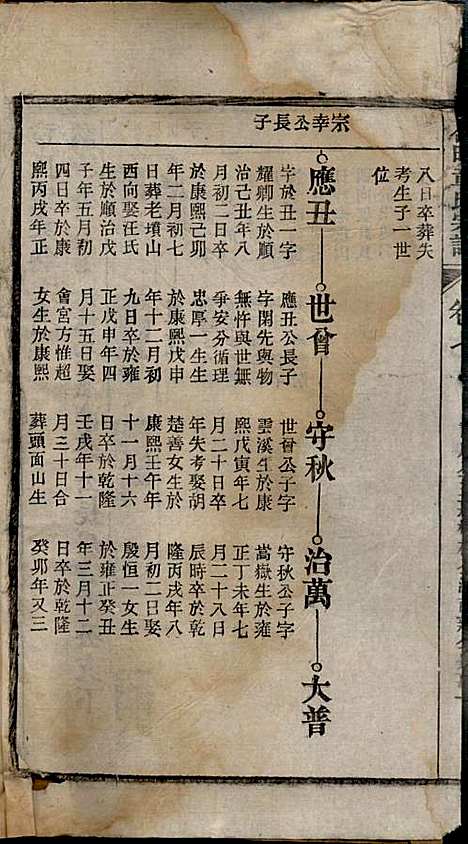 八日卒葬失
考生子一世
位
宗幸公長子
應丑
世會
守秋
治萬
大普
字於丑一字
耀卿生於順
治己丑年八
月初二日卒
於康熙己卯
年二月初七
日葬老墳山
西向娶汪氏
生於順治戊
子年五月初
四日卒於康
熙丙戌年正
應丑公長子
字閑先與物
無忤與世無
爭安分循理
忠厚一生生
於康熙戊申
年十二月初
九日卒於雍
正戊申年四
月十五日娶
會宮方惟超
女生於康熙
世會公子字
雲溪生於康
熙戊寅年七
月二十日卒
年失考娶胡
楚善女生於
康熙壬午年
十一月十六
日卒於乾隆
壬戌年十一
月三十日合
葬頭面山生
守秋公子字
嵩嶽生於雍
正丁未年七
月二十八日
辰時卒於乾
隆丙戌年八
月初二日娶
殷恒一女生
於雍正癸丑
年三月十二
日卒於乾隆
癸卯年又三